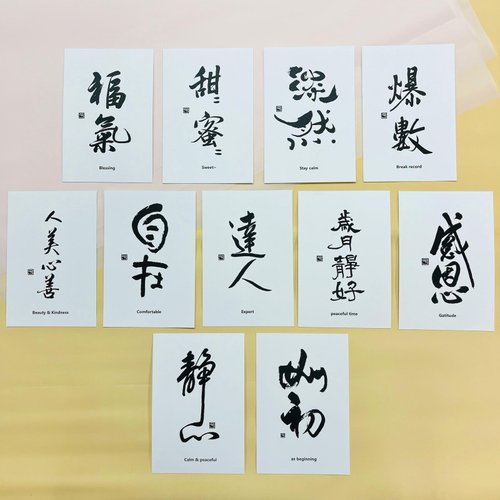 福氣
Blessing
甜〻蜜〻
Sweet~
然
Stay calm
爆數
Break record
人美心善
Beauty & Kindness
自在
Comfortable
達人
Expert
歲月靜好
peaceful time
感恩
Gatitude
靜心
Calm & peaceful
如初
at beginning